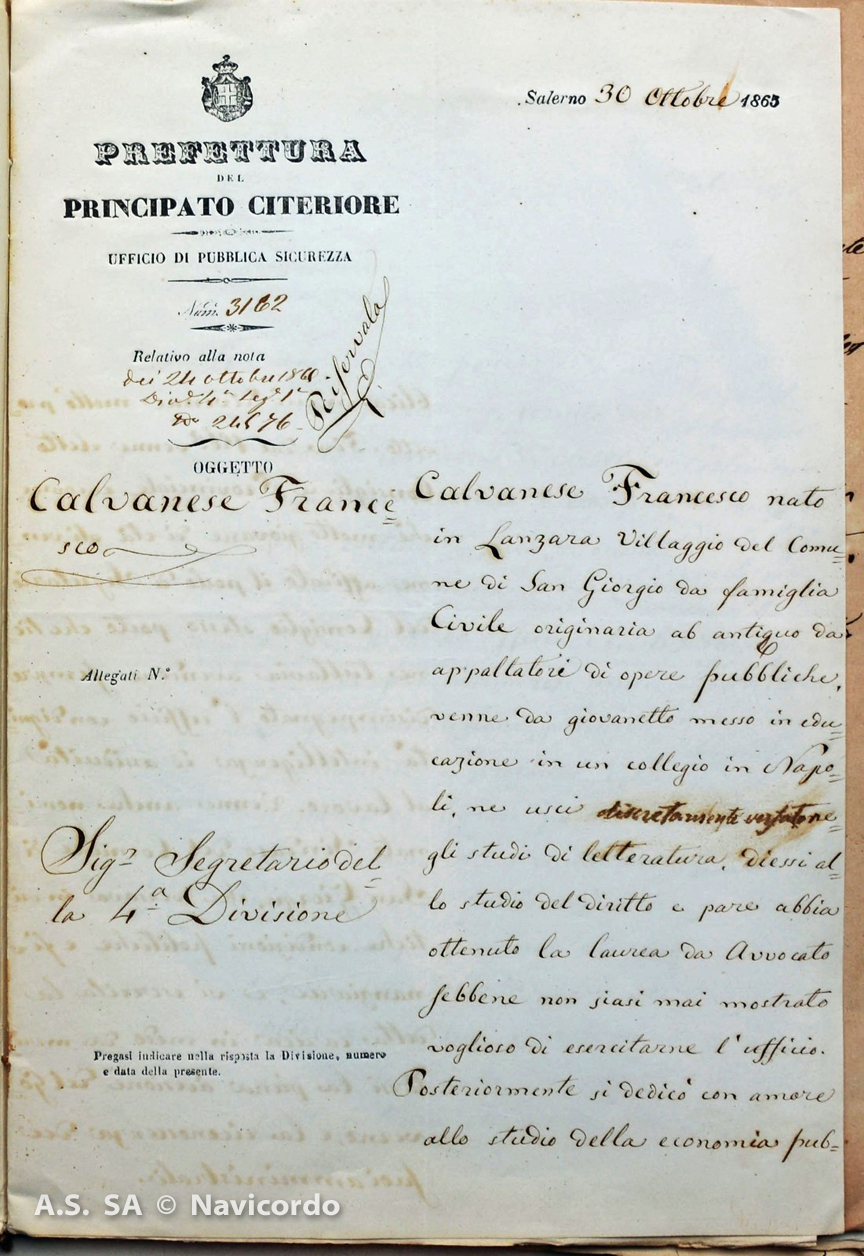 Salerno 30 Ottobre 1865
PREFETTURA
DEL
PRINCIPATO CITERIORE
UFFICIO DI PUBBLICA SICUREZZA
Num. 3162
Riservata
Relativo alla nota
dei 24 ottobre 186
Div. 4ª Seg. 1ª
OGGETTO
Calvanese France=
sco
Allegati N.º
Sigr Segretario del=
la 4ª Divisione
Pregasi indicare nella risposta la Divisione, numero
e data della presente.
Calvanese Francesco nato
in Lanzara Villaggio del Comu=
ne di San Giorgio da famiglia
Civile originaria ab antiquo da
appaltatori di opere pubbliche,
venne da giovanetto messo in edu=
cazione in un collegio in Napo=
li, ne uscì discretamente versato ne=
gli studi di letteratura, diessi al=
lo studio del diritto e pare abbia
ottenuto la laurea da Avvocato
sebbene non siasi mai mostrato
voglioso di esercitarne l'ufficio.
Posteriormente si dedicò con amore
allo studio della economia pub=
A.S. SA © Navicordo